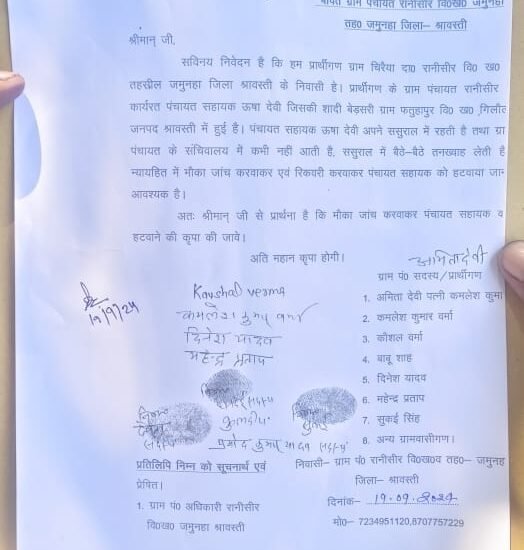 ग्राम पंचायत रानीसीर वि०ख० जमुनहा
तह० जमुनहा जिला– श्रावस्ती
श्रीमान् जी,
सविनय निवेदन है कि हम प्रार्थीगण ग्राम चिरैया दा० रानीसीर वि० ख०
तहसील जमुनहा जिला श्रावस्ती के निवासी है। प्रार्थीगण के ग्राम पंचायत रानीसीर
कार्यरत पंचायत सहायक ऊषा देवी जिसकी शादी बेड़सरी ग्राम फतुहापुर वि० ख० ,गिलौल
जनपद श्रावस्ती में हुई है। पंचायत सहायक ऊषा देवी अपने ससुराल में रहती है तथा ग्रा
पंचायत के सचिवालय में कभी नहीं आती है, ससुराल में बैठे-बैठे तनख्वाह लेती है
न्यायहित में मौका जांच करवाकर एवं रिकवरी करवाकर पंचायत सहायक को हटवाया जान
आवश्यक है।
अतः श्रीमान् जी से प्रार्थना है कि मौका जांच करवाकर पंचायत सहायक क
हटवाने की कृपा की जावे।
अति महान कृपा होगी।
अमितादेवी
ग्राम पं० सदस्य/प्रार्थीगण
1. अमिता देवी पत्नी कमलेश कुमा
2. कमलेश कुमार वर्मा
3. कौशल वर्मा
4. बाबू शाह
5. दिनेश यादव
6. महेन्द्र प्रताप
7. सुकई सिंह
8. अन्य ग्रामवासीगण।
19/9/24
Kaushal verma
कमलेश कुमार वर्मा
दिनेश यादव
महेन्द्र प्रताप
कुलदीप
प्रमोद कुमार यादव
प्रतिलिपि निम्न को सूचनार्थ एवं
प्रेषित।
1. ग्राम पं० अधिकारी रानीसीर
वि०ख० जमुनहा श्रावस्ती
निवासी– ग्राम पं० रानीसीर वि०ख०व तह०– जमुनह
जिला– श्रावस्ती
दिनांक– 19.09.2024
मो०– 7234951120,8707757229